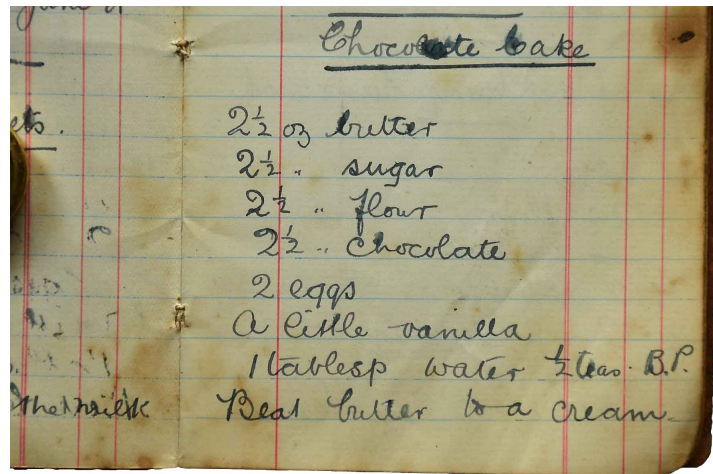 Chocolate Cake
ets.
2½ oz butter
2½ " sugar
2½ " flour
2½ " chocolate
2 eggs
A little vanilla
1 tablesp water ½ teas. B.P.
the milk
Beat butter to a cream.